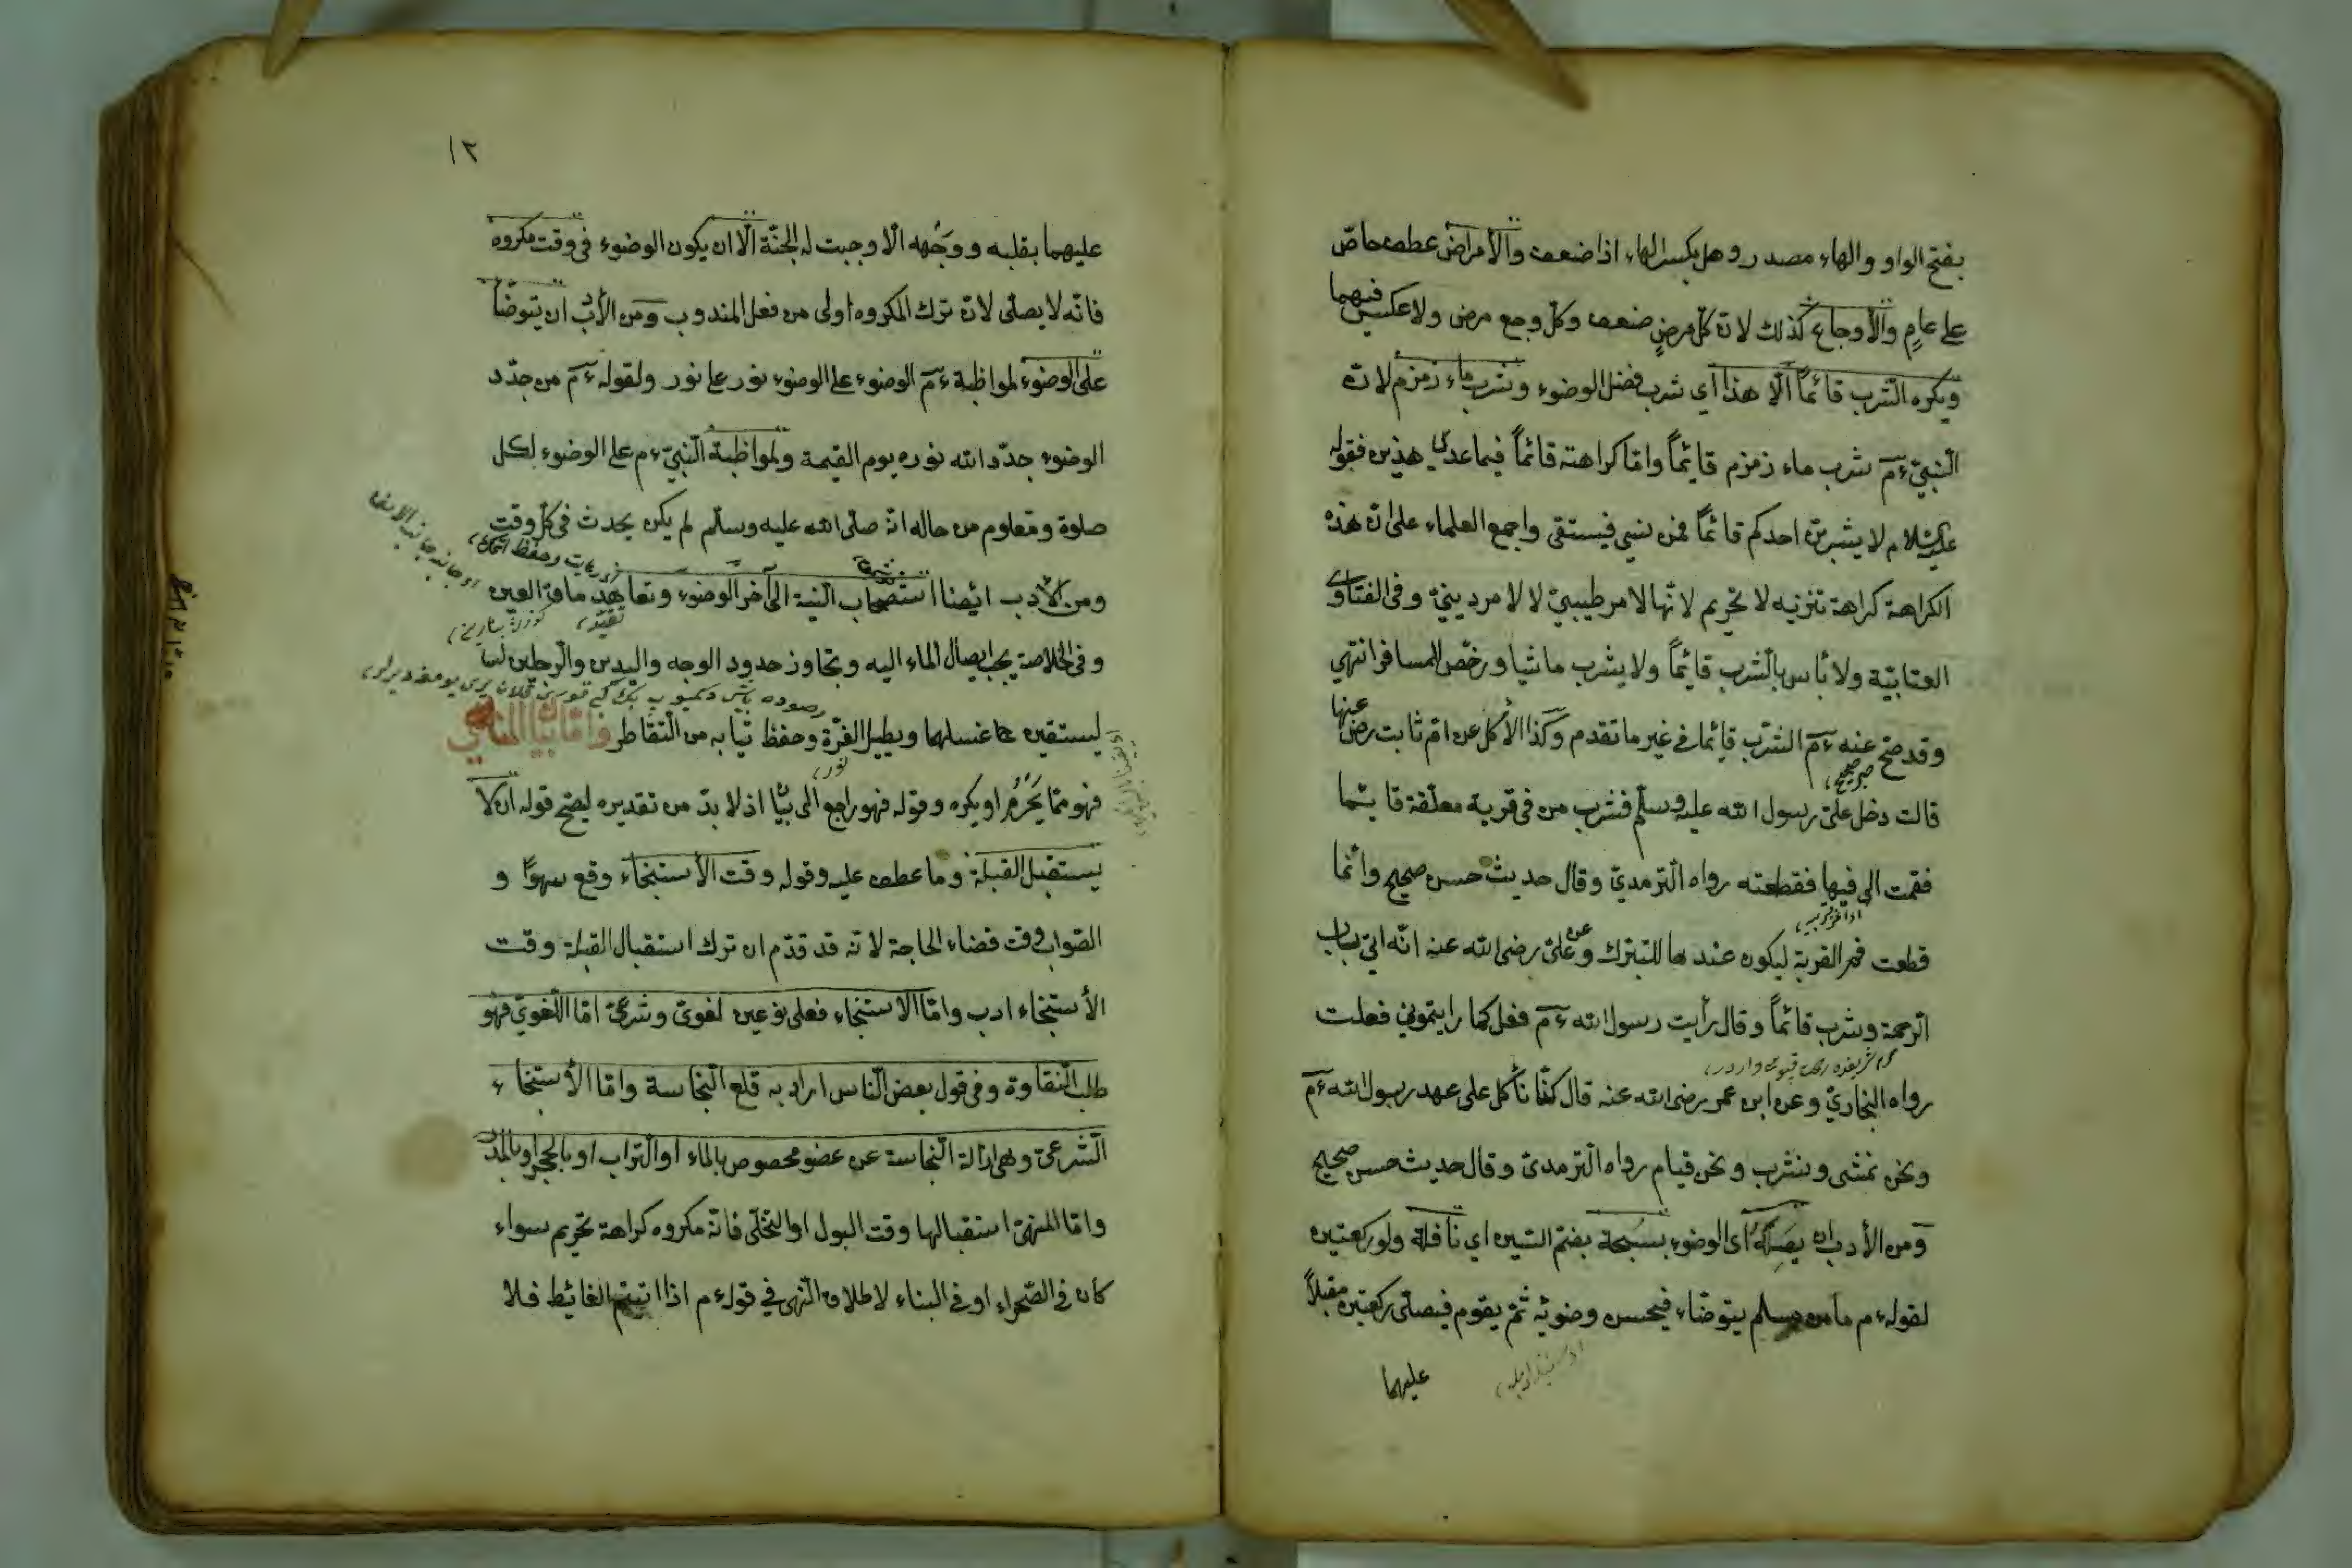 بفتح الواو والهاء مصدر وهل بكسر الهاء اذا ضعف والأمراض عطف خاصّ
على عامٍ والأوجاع كذلك لانّ كلّ مرضٍ ضعف وكلّ وجع مرض ولا عكس فيهما
ويكره الشّرب قائماً الّا هذا أي شرب فضل الوضوء وشرب ماء زمزم لانّ
النّبيّ ءمٓ شرب ماء زمزم قائماً وامّا كراهته قائماً فيما عدا هذين فقوله
عليه السّلام لا يشربنّ احدكم قائماً فمن نسي فيستقى واجمع العلماء على انّ هذه
الكراهة كراهة تنزيه لا تحريم لانّها لامر طبيبيّ لا لامر دينيّ وفى الفتاوى
العتابيّة ولا بأس بالشّرب قائماً ولا يشرب ماشيا ورخّص للمسافر انتهى
وقد صحّ عنه ءمٓ الشّرب قائما فى غير ما تقدم وكذا الأكل عن امّ ثابت رضى عنها
صريح صحيح
قالت دخل علىّ رسول الله عليه وسلّم فشرب من فى قربة معلّقة قائما
فقمت الى فيها فقطعته رواه التّرمديّ وقال حديث حسن صحيح وانّما
قطعت فم القربة ليكون عندها للتبرّك وعن علىّ رضى الله عنه انّه اتى باب
الرّحمة وشرب قائماً وقال رأيت رسول الله ءمٓ فعل كما رايتمونى فعلت
رواه البخاريّ وعن ابن عمر رضى الله عنه قال كنّا نأكل على عهد رسول الله ءمٓ
ونحن نمشى ونشرب ونحن قيام رواه التّرمديّ وقال حديث حسن صحيح
ومن الأدب ان يصله اى الوضوء بسبحة بضمّ السّين اي نافلة ولو ركعتين
لقوله ءم ما من مسلم يتوضّاء فيحسن وضوئه ثمّ يقوم فيصلّى ركعتين مقبلاً
عليهما
١٢
عليهما بقلبه ووجهه الّا وجبت له الجنّة الّا ان يكون الوضوء فى وقت مكروه
فانّه لا يصلّى لانّ ترك المكروه اولى من فعل المندوب ومن الأدب ان يتوضّأ
على الوضوء لمواظبة ءمٓ الوضوء على الوضوء نور على نور ولقوله ءمٓ من جدّد
الوضوء جدّد الله نوره يوم القيمة ولمواظبة النّبيّ ءم على الوضوء لكل
صلوة ومعلوم من حاله انّه صلّى الله عليه وسلّم لم يكن يحدث فى كلّ وقت
ومن الأدب ايضا استصحاب النّية الى آخر الوضوء وتعاهد ماق العين
وفى الخلاصة يجب ايصال الماء اليه وتجاوز حدود الوجه واليدين والرّجلين
ليستقين غسلهما ويطيل الغرّة وحفظ ثيابه من التّقاطر وامّا بيان المناهي
نور
فهو ممّا يَحرُم او يكره وقوله فهو راجع الى بيان اذ لا بدّ من تقديره ليصحّ قوله ان لا
يستقبل القبلة وما عطف عليه وقوله وقت الأستنجاء وقع سهوًا و
الصّواب وقت قضاء الحاجة لانّه قد قدّم ان ترك استقبال القبلة وقت
الأستنجاء ادب وامّا الاستنجاء فعلى نوعين لغويّ وشرعيّ امّا اللّغويّ فهو
طلب النّقاوة وفى قول بعض النّاس اراد به قلع النّجاسة وامّا الأستنجاء
الشّرعىّ وهى ازالة النّجاسة عن عضو مخصوص بالماء او التّراب او بالحجر او بالمدر
وامّا المنهىّ استقبالها وقت البول او التخلّى فانّه مكروه كراهة تحريم سواء
كان فى الصّحراء او فى البناء لاطلاق النّهى فى قوله ءم اذا اتيتم الغائط فلا